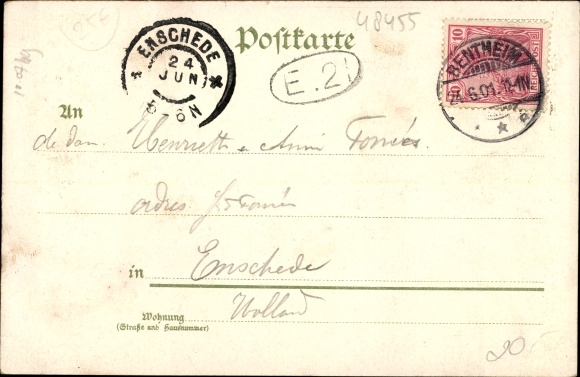 48455
Postkarte
ENSCHEDE
24
JUN
5-6N
E.2
10 10
REICHSPOST
BENTHEIM
24.6.01. 12-1N
An
de dam. Henriette Anni
adres
Enschede
in
Holland
Wohnung
(Straße und Hausnummer)
20.-